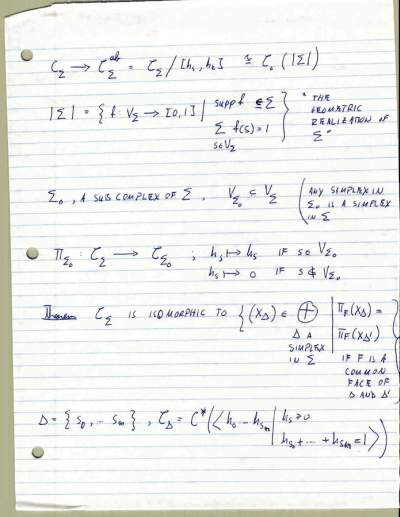 C_Σ → C_Σ^ab = C_Σ / [h_s, h_t] ≅ C_0(|Σ|)
|Σ| = { f : V_Σ → [0,1] | supp f ∈ Σ, Σ_{s∈V_Σ} f(s) = 1 } "THE GEOMETRIC REALIZATION OF Σ"
Σ_0, A SUBCOMPLEX OF Σ, V_{Σ_0} ⊆ V_Σ (ANY SIMPLEX IN Σ_0 IS A SIMPLEX IN Σ
Π_{Σ_0} : C_Σ → C_{Σ_0} ; h_s ↦ h_s IF s ∈ V_{Σ_0}
h_s ↦ 0 IF s ∉ V_{Σ_0}
Theorem C_Σ IS ISOMORPHIC TO { (X_Δ) ∈ ⊕_{Δ A SIMPLEX IN Σ} | Π_F(X_Δ) = Π_F(X_Δ') IF F IS A COMMON FACE OF Δ AND Δ' }
Δ = { s_0, ... s_m }, C_Δ = C*(⟨ h_0 ... h_{s_m} | h_s ≥ 0
h_{s_0} + ... + h_{s_m} = 1 ⟩)